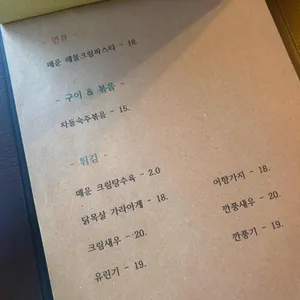 - 면류 -
매운 해물크림파스타 - 18.
- 구이 & 볶음 -
차돌숙주볶음 - 15.
- 튀김 -
매운 크림탕수육 - 2.0
닭목살 가라아게 - 18.
크림새우 - 20.
유린기 - 19.
어향가지 - 18.
깐풍새우 - 20.
깐풍기 - 19.